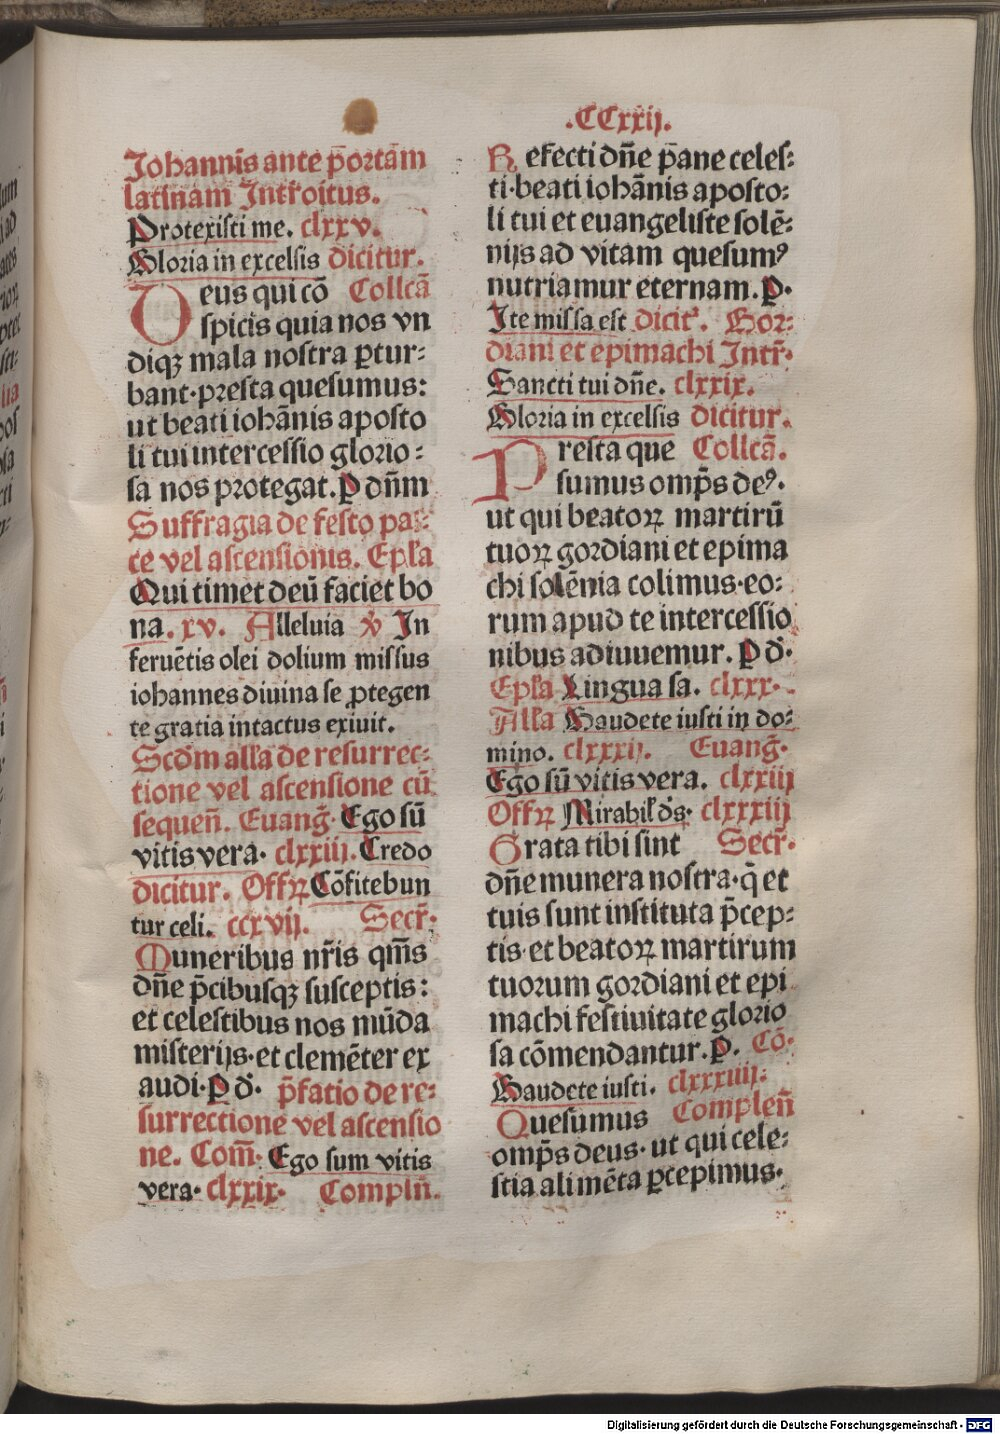 .CCxxij.
Johannis ante portam
latinam Introitus.
Protexisti me. clxxv.
Gloria in excelsis dicitur.
Deus qui cō Collcā
spicis quia nos vn
diqꝫ mala nostra ꝑtur:
bant·presta quesumus:
ut beati iohānis aposto
li tui intercessio glorio:
sa nos protegat. P dn̄m
Suffragia de festo pas:
ce vel ascensionis. Ep̄la
Qui timet deū faciet bo
na. xv. Alleluia ꝟ In
feruētis olei dolium missus
iohannes diuina se ꝓtegen
te gratia intactus exiuit.
Scd̄m all̄a de resurrec:
tione vel ascensione cū
sequen̄. Euang̃· Ego sū
vitis vera· clxxiij. Credo
dicitur. Offꝝ Cōfitebun
tur celi. ccxvij. Secr̄·
Muneribus nr̄is qm̄s
dn̄e p̄cibusqꝫ susceptis:
et celestibus nos mūda
misterijs·et clemēter ex
audi·P d̄. p̄fatio de re:
surrectione vel ascensio
ne. Com̄· Ego sum vitis
vera· clxxix· Compln̄.
Refecti dn̄e pane celes:
ti·beati iohānis aposto:
li tui et euangeliste solē:
nijs ad vitam quesumꝰ
nutriamur eternam. P·
Ite missa est dicit̄. Gor:
diani et epimachi Intr̄·
Sancti tui dn̄e. clxxix.
Gloria in excelsis dicitur.
Presta que Collcā.
sumus omp̄s deꝰ.
ut qui beatoꝝ martirū
tuoꝝ gordiani et epima
chi solēnia colimus·eo:
rum apud te intercessio
nibus adiuuemur. P d̄·
Ep̄la Lingua sa. clxxx·
All̄a Gaudete iusti in do:
mino. clxxxij. Euang̃·
Ego sū vitis vera. clxxiij
Offꝝ Mirabil̄ d̄s· clxxxiij
Grata tibi sint Secr̄·
dn̄e munera nostra·q̄ et
tuis sunt instituta p̄cep:
tis·et beatoꝝ martirum
tuorum gordiani et epi
machi festiuitate glorio
sa cōmendantur. P. Cō·
Gaudete iusti. clxxxiiij.
Quesumus Complen̄
omp̄s deus· ut qui cele:
stia alimēta ꝑcepimus·
Digitalisierung gefördert durch die Deutsche Forschungsgemeinschaft - DFG